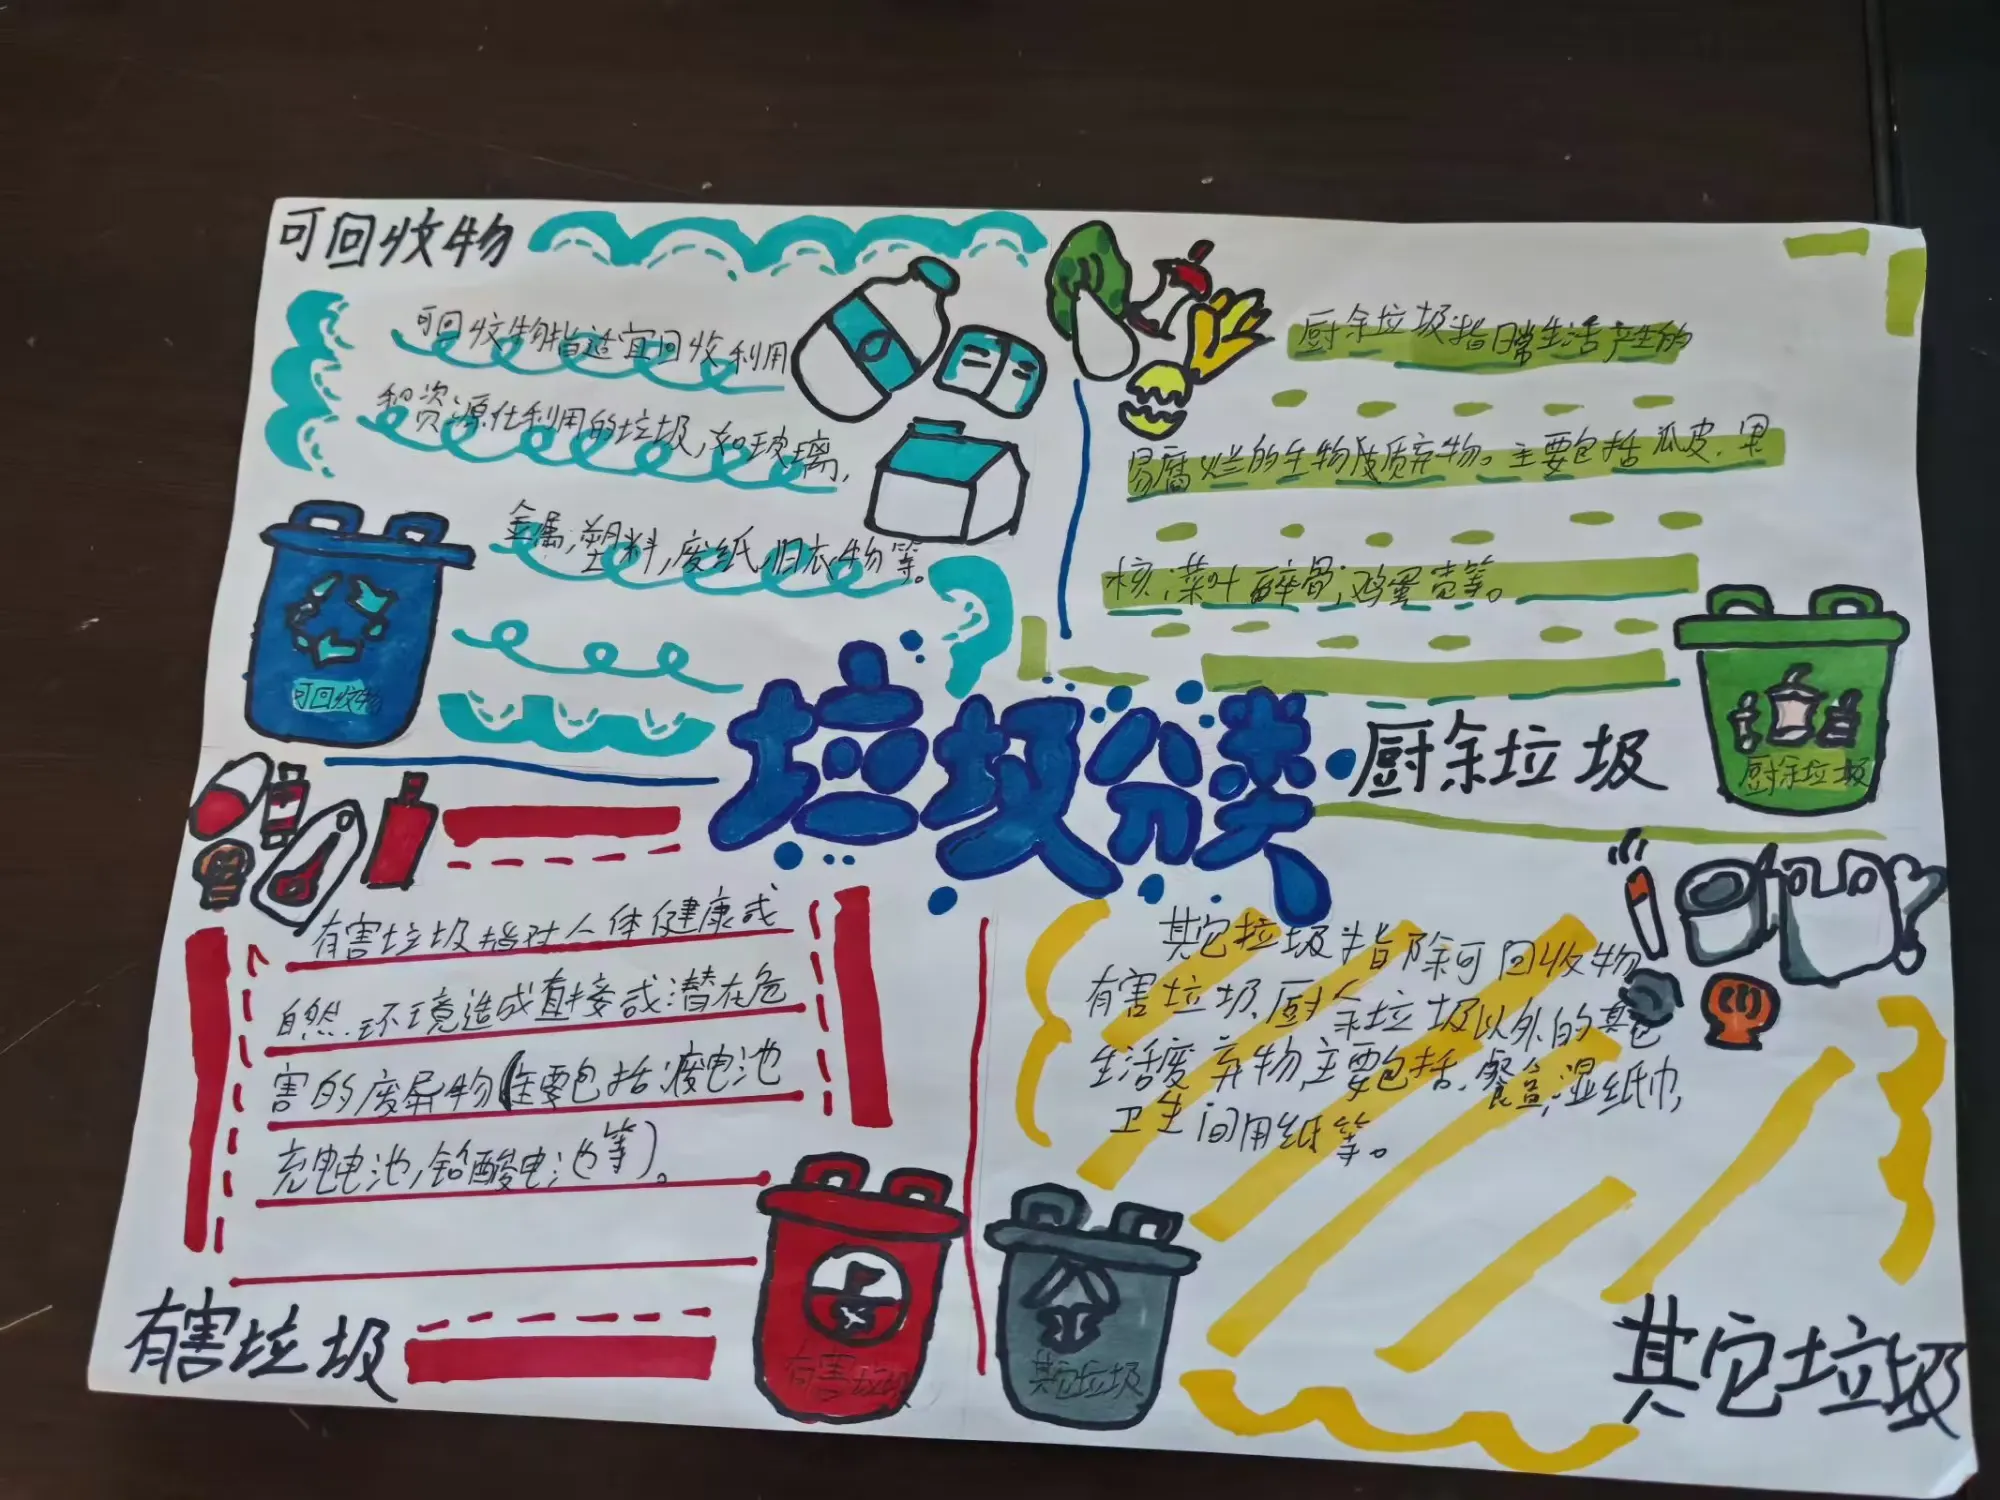 可回收物
可回收物指适宜回收利用
和资源化利用的垃圾,如玻璃,
金属,塑料,废纸,旧衣物等。
可回收物
厨余垃圾指日常生活产生的
易腐烂的生物质弃物。主要包括瓜皮、果
核,菜叶碎骨,鸡蛋壳等。
厨余垃圾
厨余垃圾
垃圾分类
有害垃圾指对人体健康或
自然.环境造成直接或潜在危
害的废弃物(主要包括废电池
充电电池,铅酸电池等)。
有害垃圾
有害垃圾
其它垃圾指除可回收物
有害垃圾、厨余垃圾以外的其它
生活废弃物,主要包括.餐盒,湿纸巾,
卫生间用纸等。
其它垃圾
其它垃圾